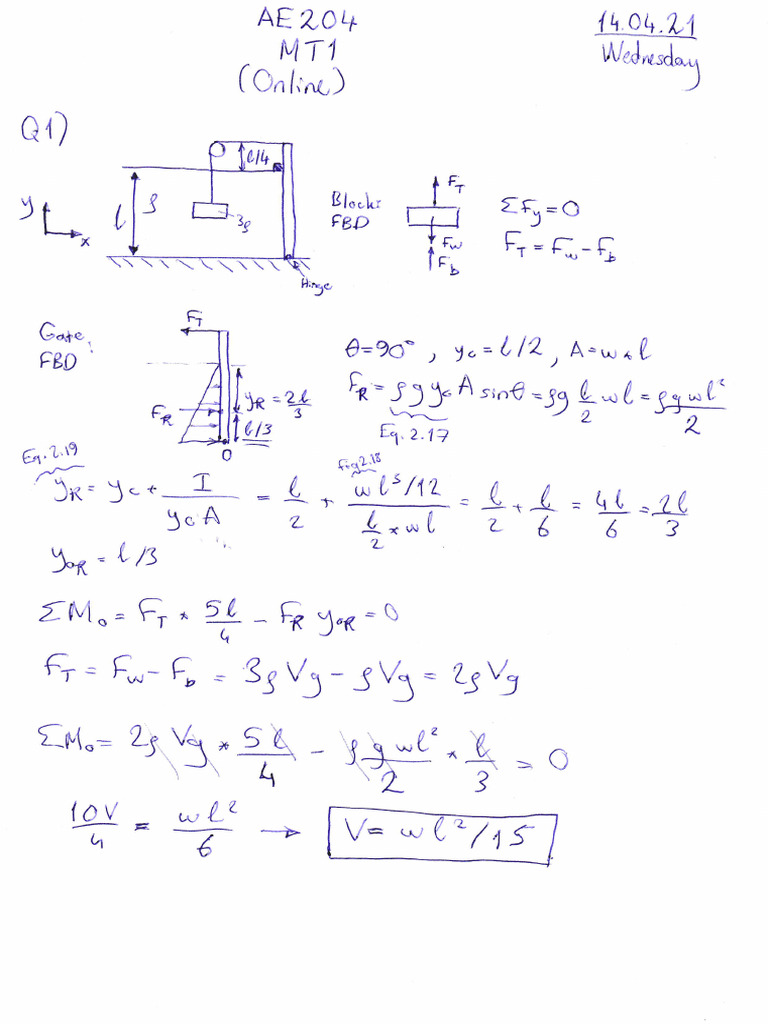 AE204
MT1
(Online)
14.04.21
Wednesday
Q1)
l/4
y
x
l
ρ
3ρ
Hinge
Block:
FBD
F_T
F_w
F_b
ΣF_y = 0
F_T = F_w - F_b
Gate:
FBD
F_T
F_R
y_R = 2l/3
l/3
O
θ = 90°, y_c = l/2, A = w * l
F_R = ρ g y_c A sinθ = ρg l/2 wl = ρgwl²/2
Eq. 2.17
Eq. 2.19
Fig 2.18
y_R = y_c + I/(y_c A) = l/2 + (wl³/12)/(l/2 * wl) = l/2 + l/6 = 4l/6 = 2l/3
y_OR = l/3
ΣM_o = F_T * 5l/4 - F_R y_OR = 0
F_T = F_w - F_b = 3ρVg - ρVg = 2ρVg
ΣM_o = 2ρVg * 5l/4 - ρgwl²/2 * l/3 = 0
10V/4 = wl²/6 → V = wl²/15